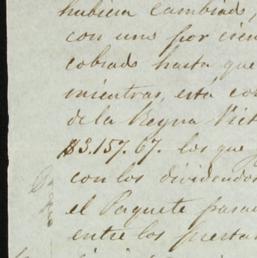 hubiera cambiado,
con uno por cien
cobrado hasta que
mientras, está co
de la Reyna Vict
$3.157.67. los que
con los dividendos
el Paquete pasa
entre los puerta